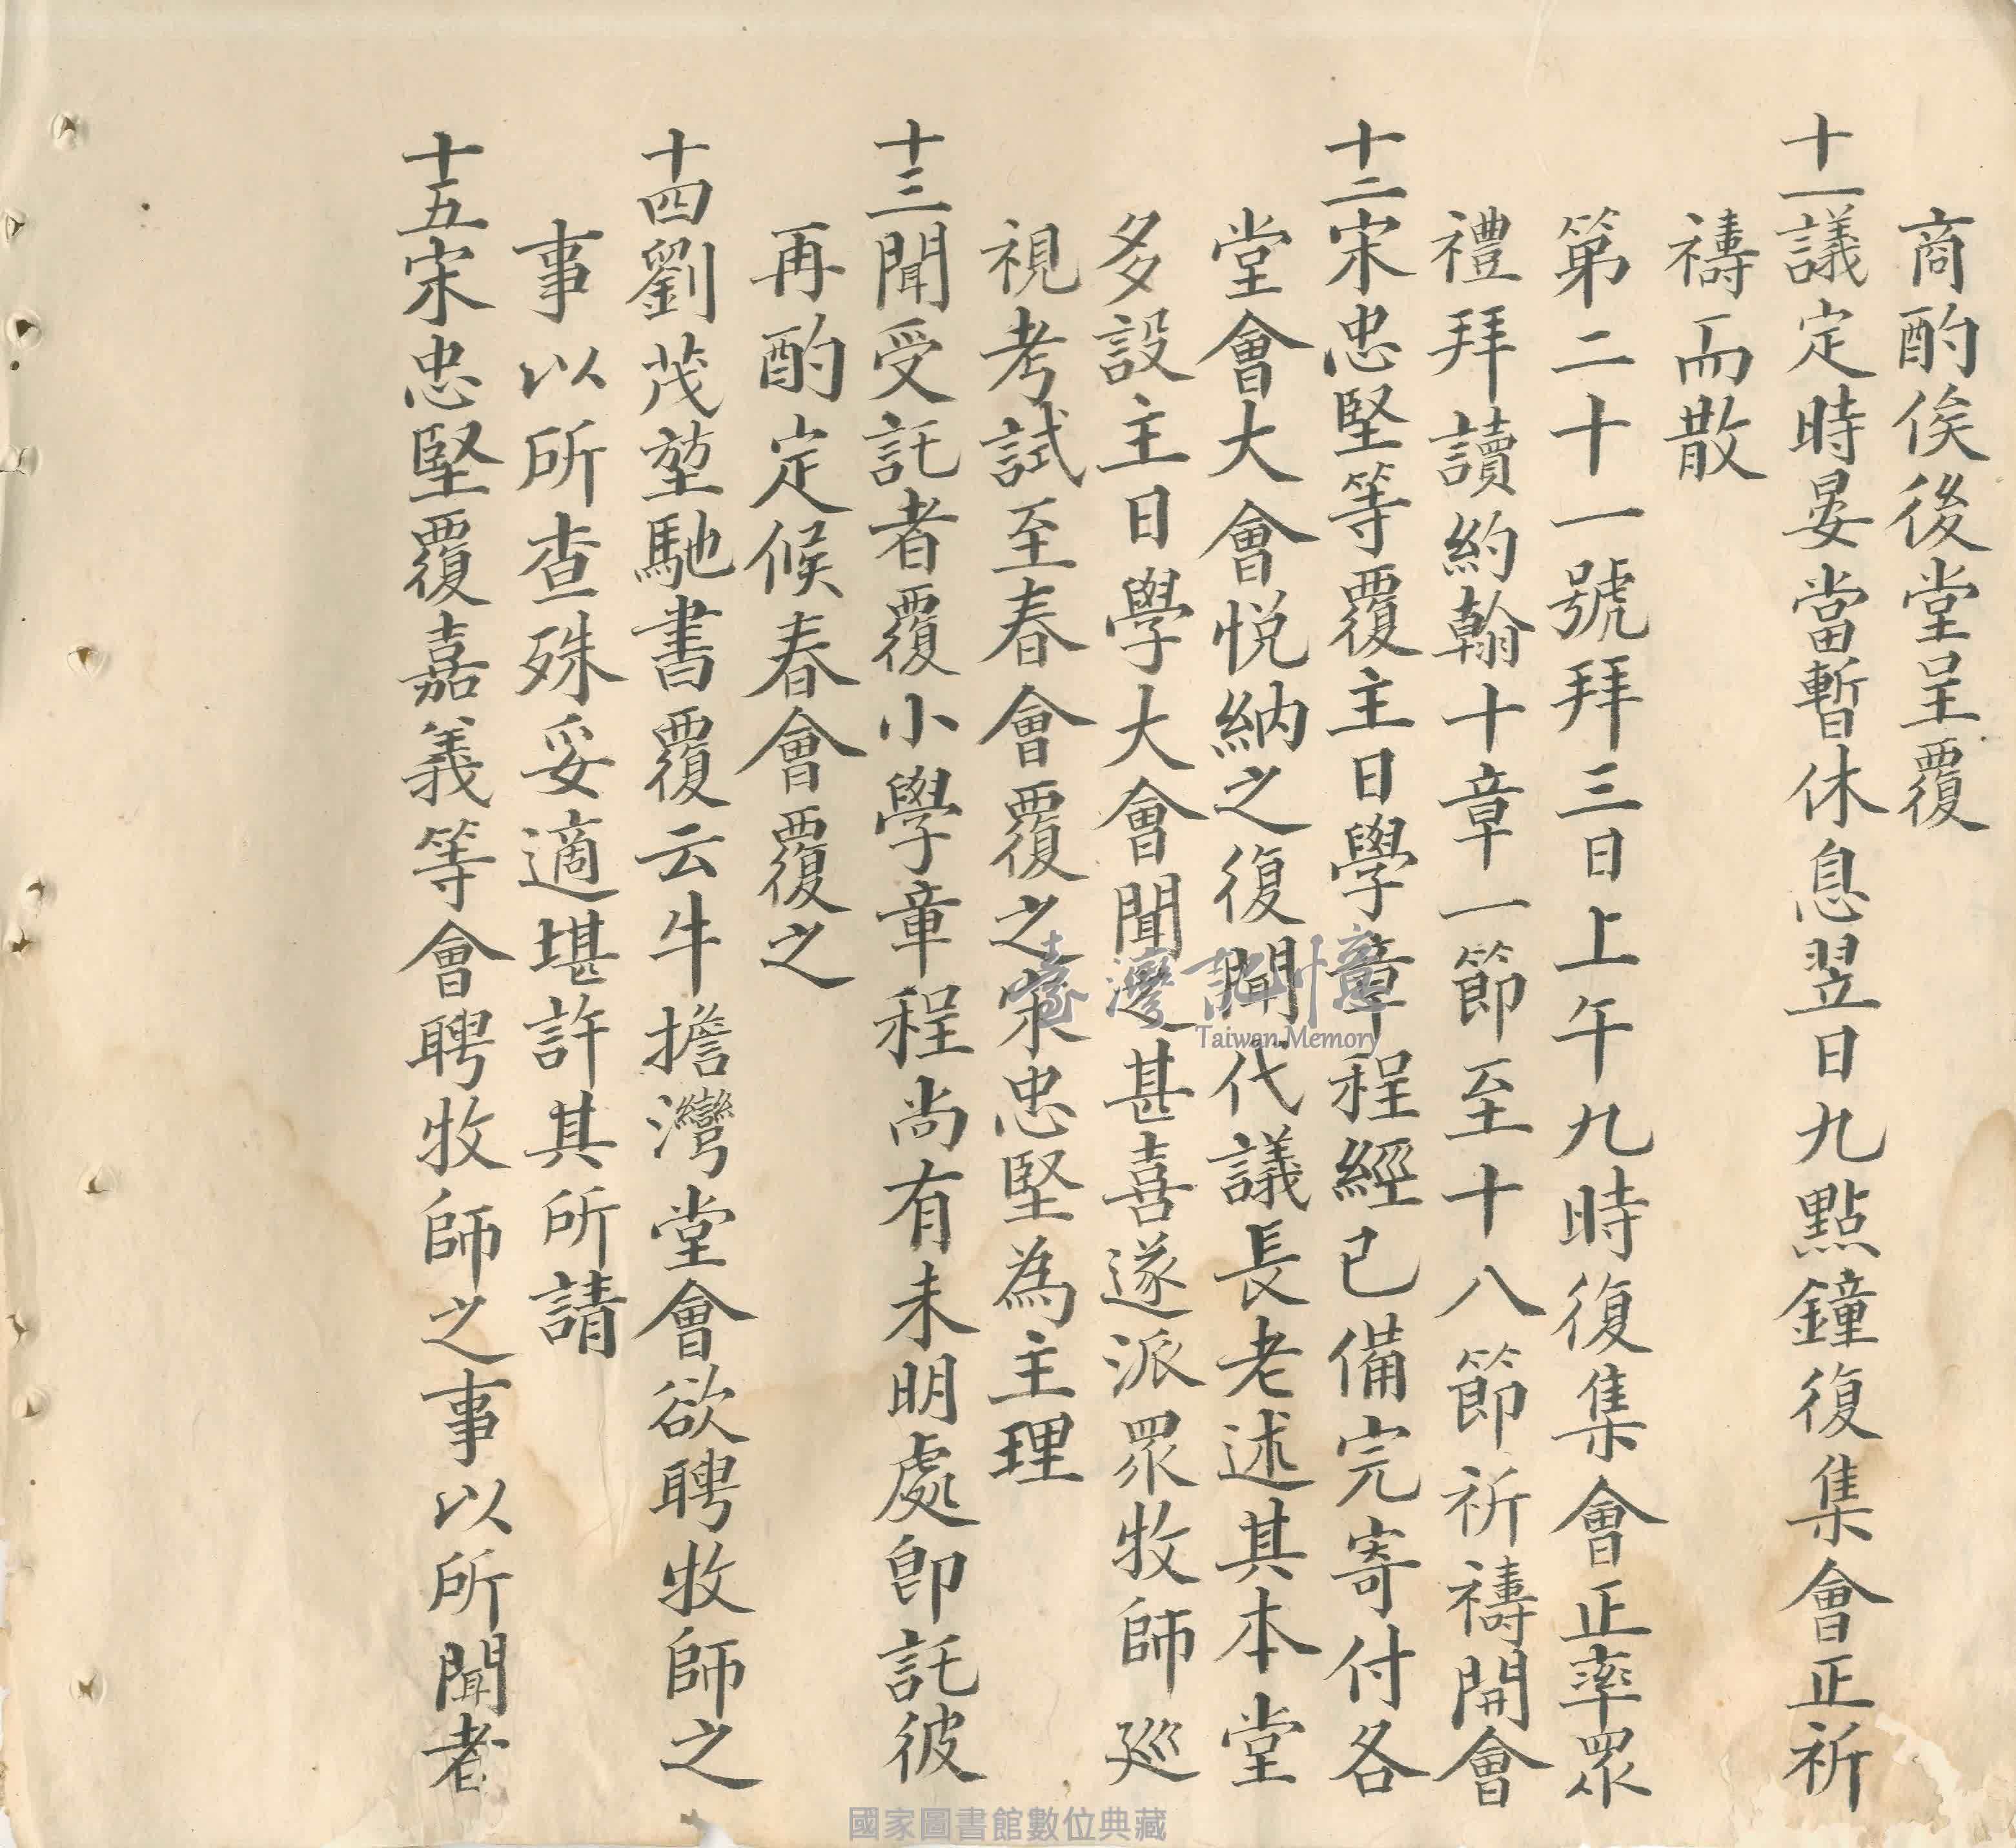 商酌俟後堂呈覆
十一議定時晏當暫休息翌日九點鐘復集會正祈
禱而散
第二十一號拜三日上午九時復集會正率眾
禮拜讀約翰十章一節至十八節祈禱開會
十二宋忠堅等覆主日學章程經已備完寄付各
堂會大會悅納之復聞代議長老述其本堂
多設主日學大會聞之甚喜遂派眾牧師巡
視考試至春會覆之宋忠堅為主理
十三聞受託者覆小學章程尚有未明處即託彼
再酌定候春會覆之
十四劉茂堃馳書覆云牛擔灣堂會欲聘牧師之
事以所查殊妥適堪許其所請
十五宋忠堅覆嘉義等會聘牧師之事以所聞者
臺灣記憶
Taiwan Memory
國家圖書館數位典藏